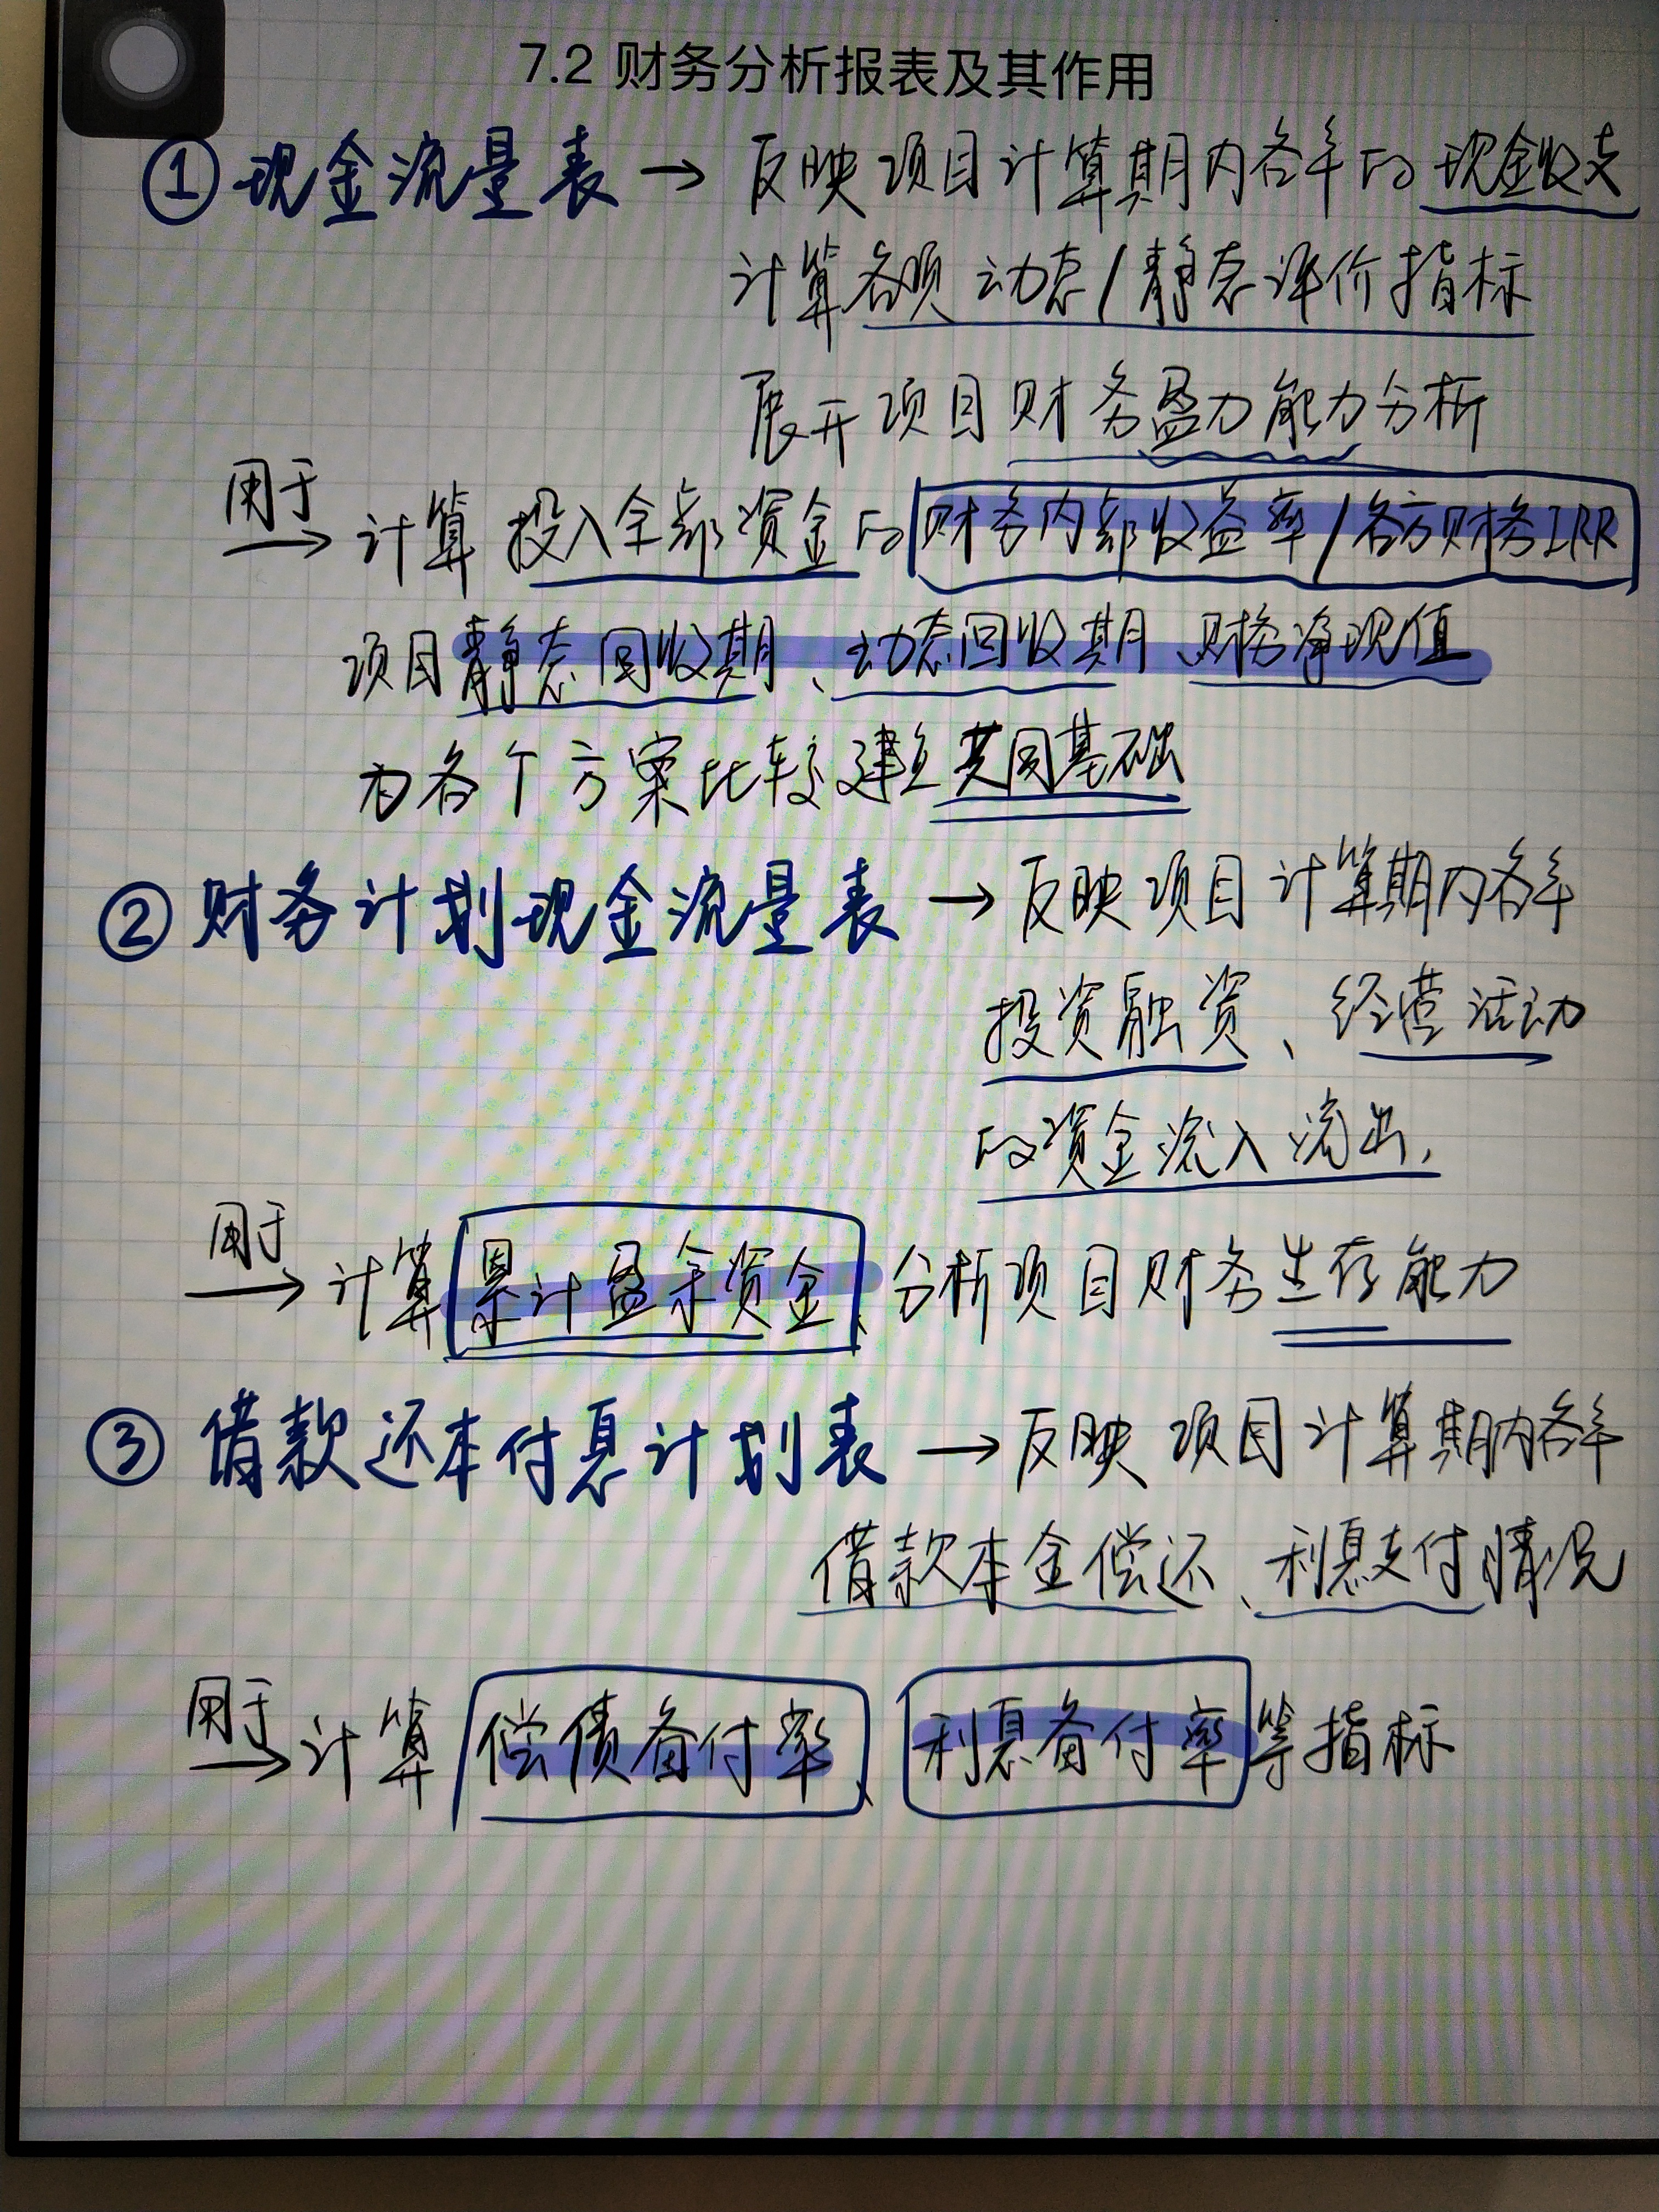 7.2 财务分析报表及其作用
① 现金流量表 → 反映项目计算期内各年的现金收支
计算各项 动态/静态评价指标
展开项目财务盈力能力分析
用于
→ 计算 投入全部资金的财务内部收益率/各方财务IRR
项目静态回收期、动态回收期、财务净现值
为各个方案比较建立共同基础
② 财务计划现金流量表 → 反映项目计算期内各年
投资融资、经营活动
的资金流入流出.
用于
→ 计算累计盈余资金、分析项目财务生存能力
③ 借款还本付息计划表 → 反映项目计算期内各年
借款本金偿还、利息支付情况
用于
→ 计算 偿债备付率、利息备付率等指标